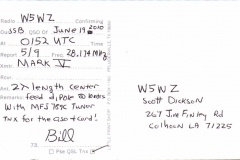 Radio W5WZ Confirming
SSB QSO Of June 19, 2010
At 0152 UTC
Report 5/9 Freq 28.474 MHz
Xmtr MARK V
Ant 27' length center
feed dipole
With MFJ Tuner
Tnx for the QSO + card!
Bill
73,
Pse QSL Tnx
W5WZ
Scott Dickson
267 Jim Finley Rd
Calhoun LA 71225